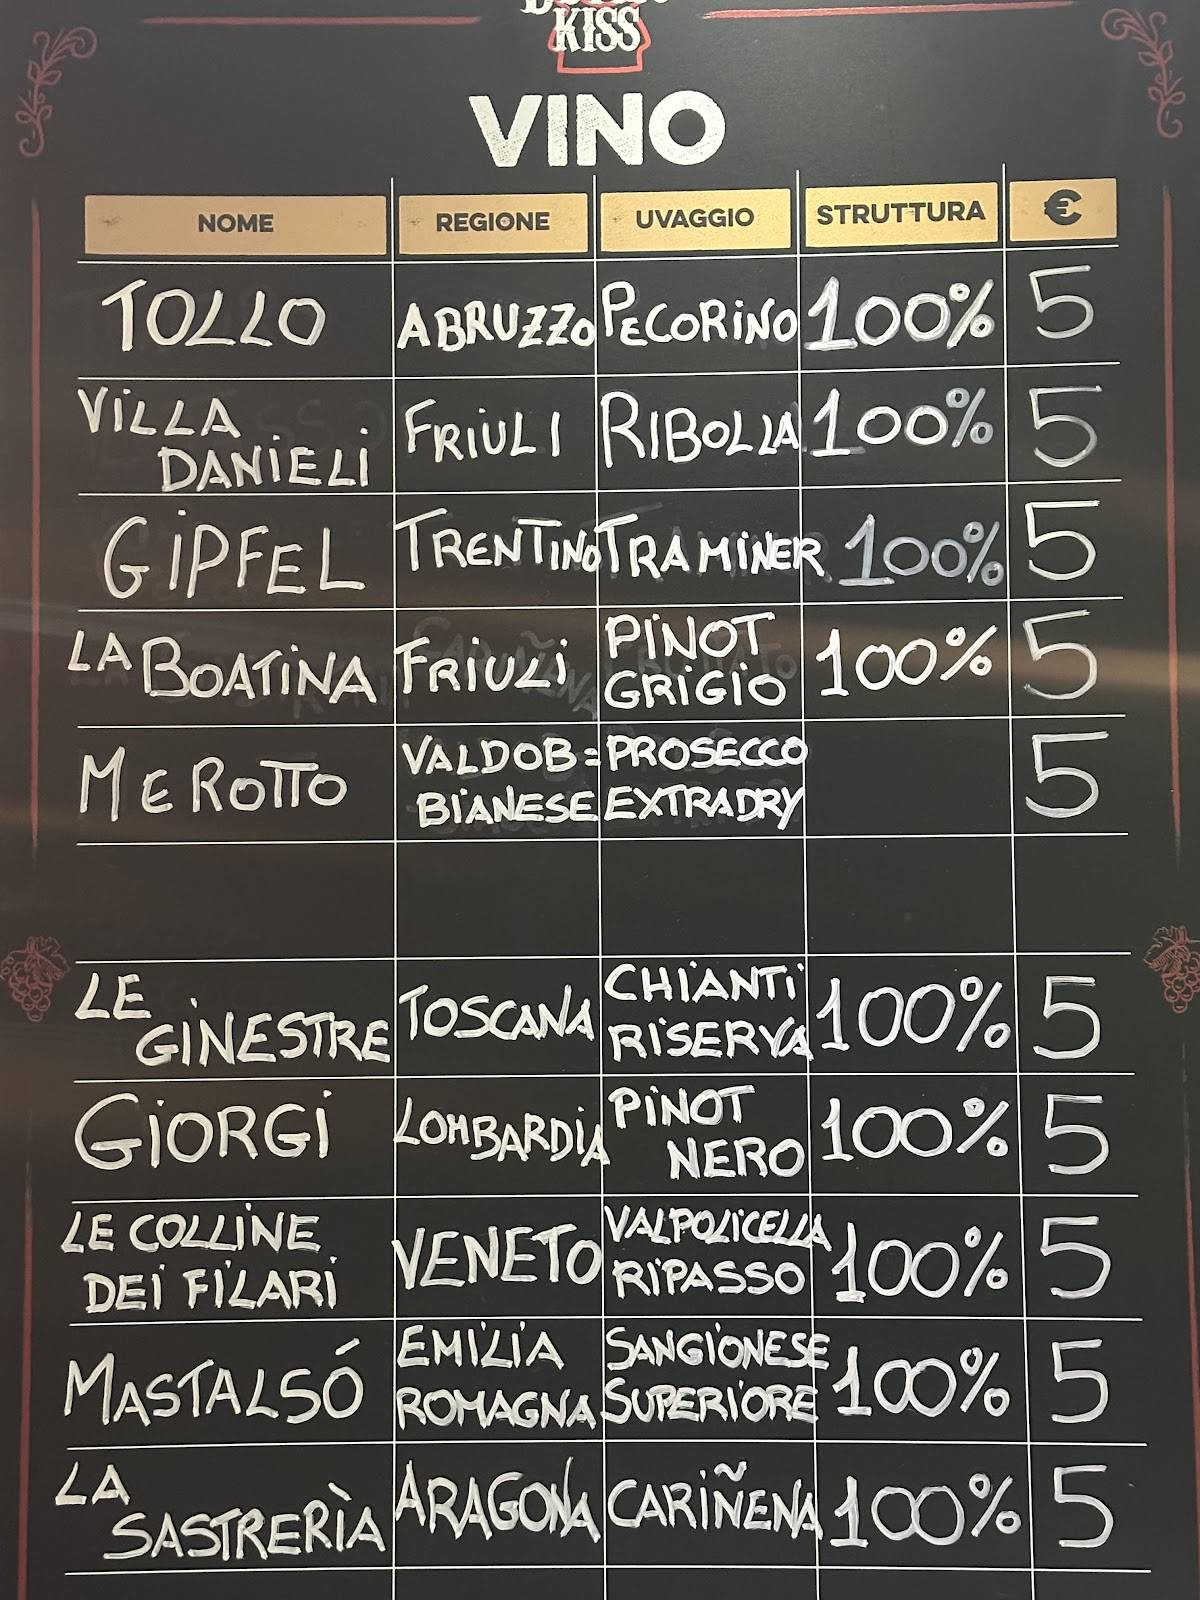 KISS
VINO
NOME REGIONE UVAGGIO STRUTTURA €
TOLLO ABRUZZO PECORINO 100% 5
VILLA DANIELI FRIULI RIBOLLA 100% 5
GIPFEL TRENTINO TRAMINER 100% 5
LA BOATINA FRIULI PINOT GRIGIO 100% 5
MEROTTO VALDOB= BIANESE PROSECCO EXTRADRY 5
LE GINESTRE TOSCANA CHIANTI RISERVA 100% 5
GIORGI LOMBARDIA PINOT NERO 100% 5
LE COLLINE DEI FILARI VENETO VALPOLICELLA RIPASSO 100% 5
MASTALSÓ EMILIA ROMAGNA SANGIONESE SUPERIORE 100% 5
LA SASTRERÌA ARAGONA CARIÑENA 100% 5